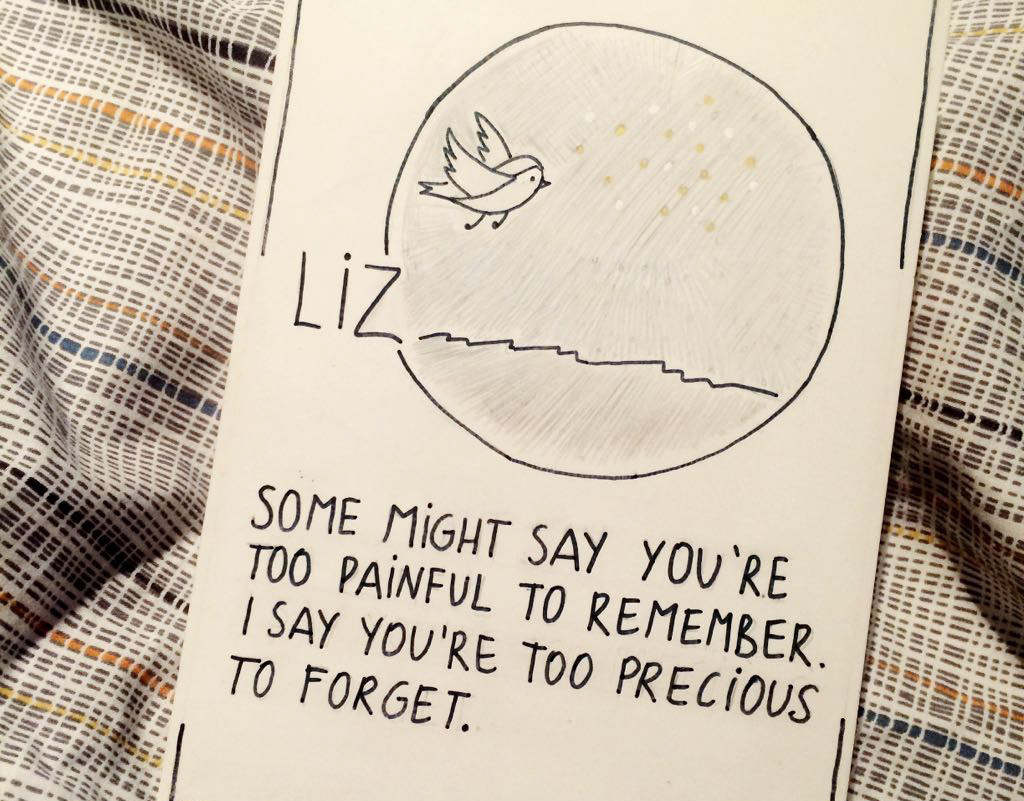 LiZ
SOME MiGHT SAY YOU'RE
TOO PAiNFUL TO REMEMBER.
I SAY YOU'RE TOO PRECiOUS
TO FORGET.